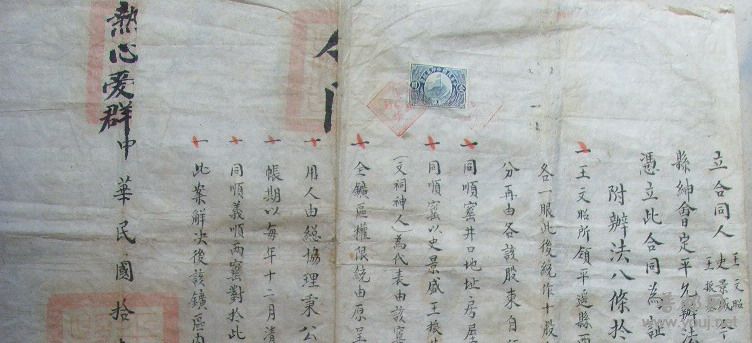 立合同人
王文昭
史景威
王振基
縣紳會定平允辦法
憑立此合同為証
附辦法八條於
一王文昭所領平遥縣西
各一眼此後統作十股
分再由各該股東自
一同順窰井口地址房屋
一同順窰以史景威王振
(文祠神人)為代表由該窰
一全鑛區權限統由原呈
一用人由總協理秉公
一帳期以每年十二月清
一同順義順兩窰對於此
一此案解决後該鑛區内
中華民國拾
熱心爱群
www.youj.net